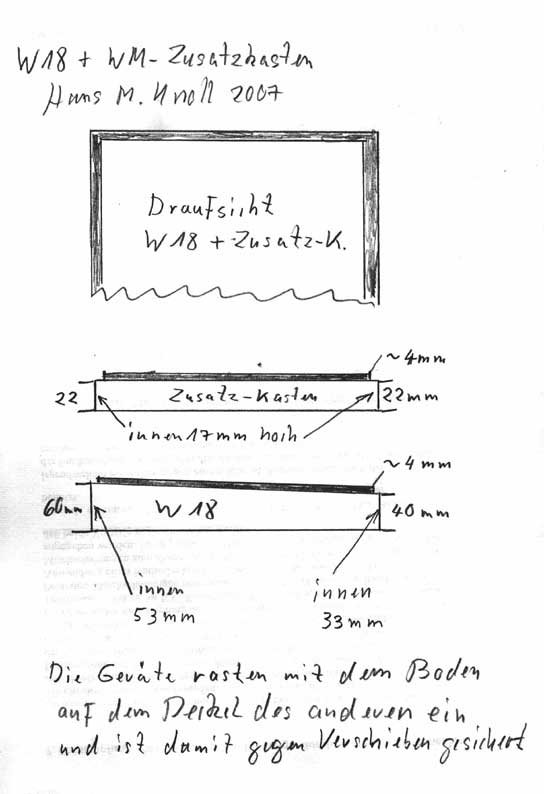 W18 + WM-Zusatzkasten
Hans M. Knoll 2007
Draufsicht
W18 + Zusatz-K.
~4mm
22 Zusatz-Kasten 22mm
innen 17mm hoch
~4 mm
60mm W 18 40 mm
innen innen
53mm 33mm
Die Geräte rasten mit dem Boden
auf dem Deckel des anderen ein
und ist damit gegen Verschieben gesichert